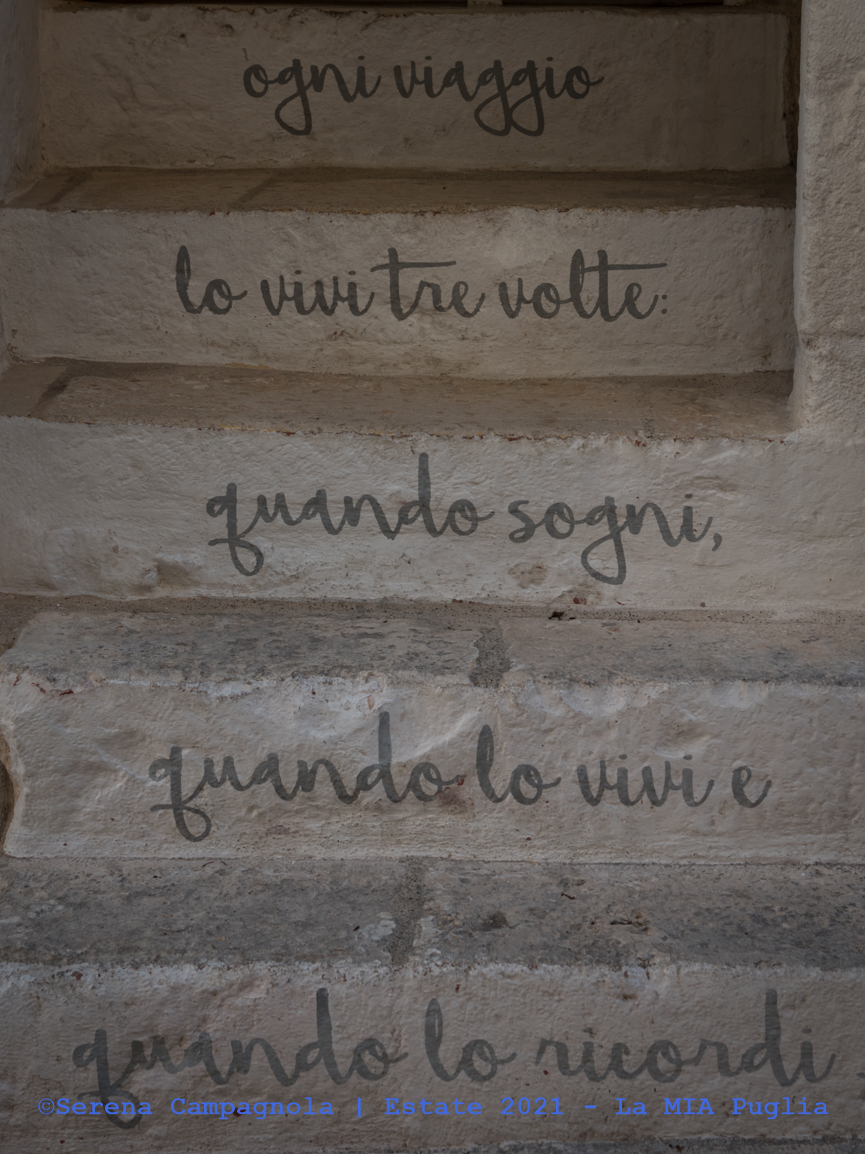 ogni viaggio
lo vivi tre volte:
quando sogni,
quando lo vivi e
quando lo ricordi
©Serena Campagnola | Estate 2021 - La MIA Puglia